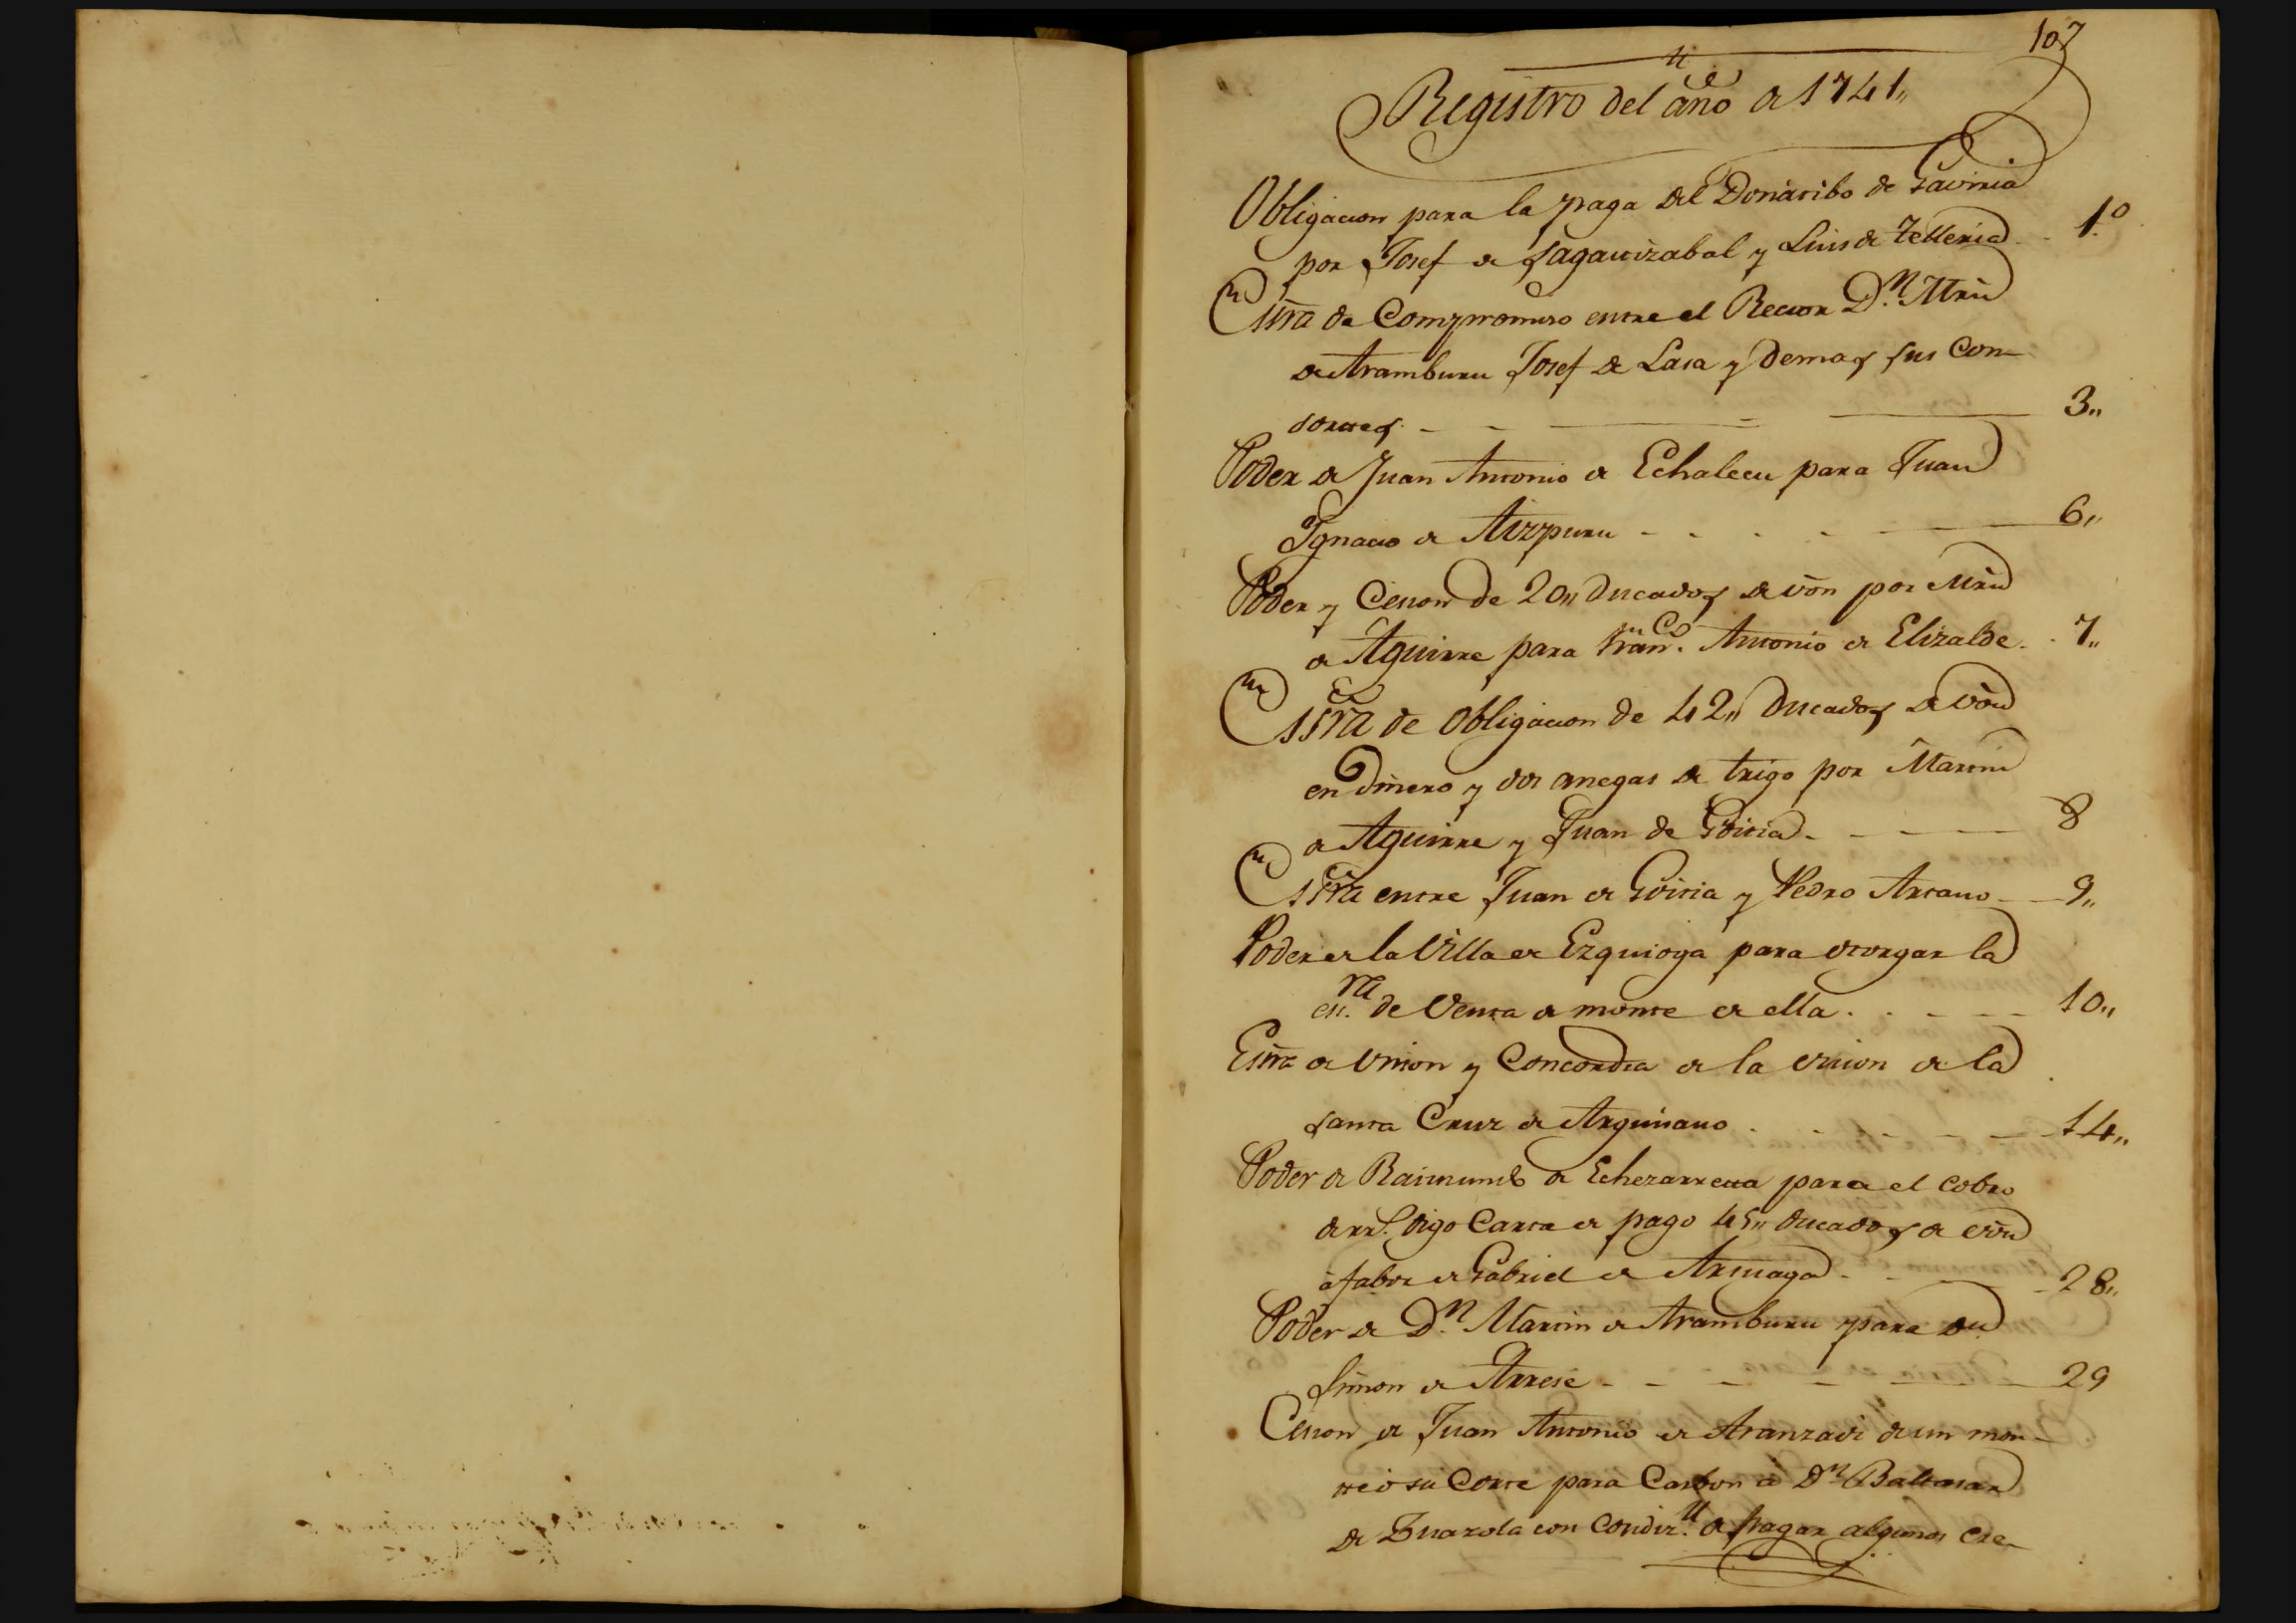 107
Registro del año de 1741,,
Obligacion para la paga del Donatibo de Gaviria
por Josef de Sagastizabal y Luis de Telleria - - 1.º
Essrã de Compromiso entre el Rector D.n Mrñ
de Aramburu Josef de Lasa y demas sus Con-
sortes. - - - 3,,
Poder de Juan Antonio de Echalecu para Juan
Ignacio de Aizpuru - - - - 6,,
Poder y Cesion de 20,, Ducados de vòn por Mrñ
de Aguirre para Fran.co Antonio de Elizalde. - 7,,
Essrã de Obligacion de 42,, Ducados de vòn
en dinero y dos anegas de trigo por Martin
de Aguirre y Juan de Goitia - - - 8
Essrã entre Juan de Goitia y Pedro Artano - - 9,,
Poder de la Villa de Ezquioga para otorgar la
es.ra de Venta de monte de ella . - - - 10,,
Essrã de Union y Concordia de la Union de la
santa Cruz de Arguisano . - - - 14,,
Poder de Raimundo de Echezarreta para el cobro
de rr.s digo Carta de pago 45,, ducados de vòn
à fabor de Gabriel de Arteaga - - - 28,,
Poder de D.n Martin de Aramburu para dn
Simon de Arrese - - - - 29
Cesion de Juan Antonio de Aranzadi de un mon-
te ò su Corte para Carbon à Dn Baltasar
de Zuazola con condiz.n de pagar algunos cre-